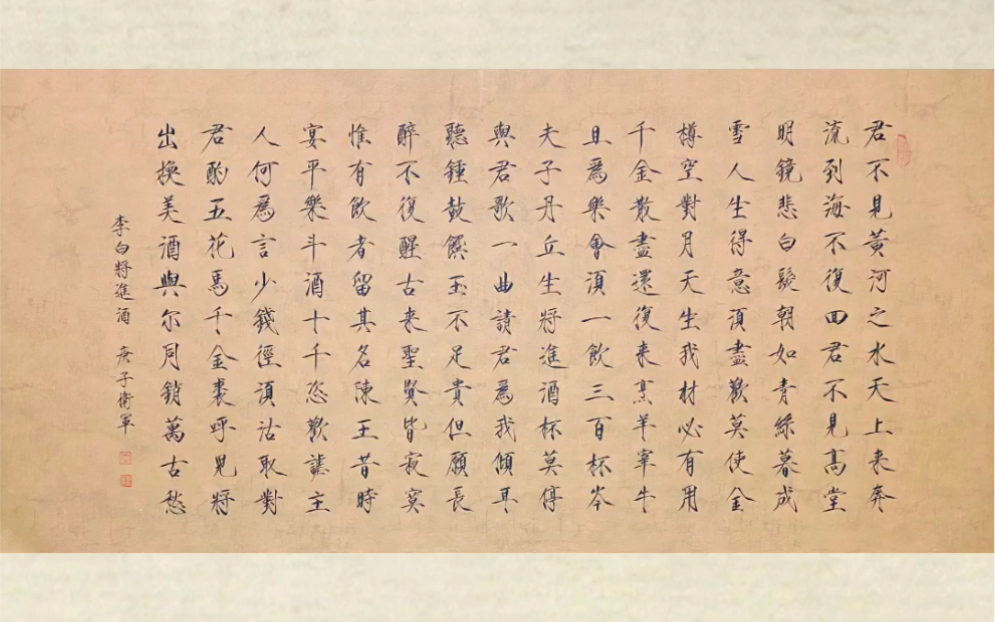 君不見黃河之水天上来奔
流到海不復回君不見高堂
明鏡悲白髮朝如青絲暮成
雪人生得意湏盡歡莫使金
樽空對月天生我材必有用
千金散盡還復来烹羊宰牛
且爲樂會湏一飲三百杯岑
夫子丹丘生將進酒杯莫停
與君歌一曲請君爲我傾耳
聽鍾鼓饌玉不足貴但願長
醉不復醒古来聖賢皆寂寞
惟有飲者留其名陳王昔時
宴平樂斗酒十千恣歡謔主
人何爲言少錢徑湏沽取對
君酌五花馬千金裘呼兒將
出換美酒與尔同銷萬古愁
李白將進酒 庚子衛軍